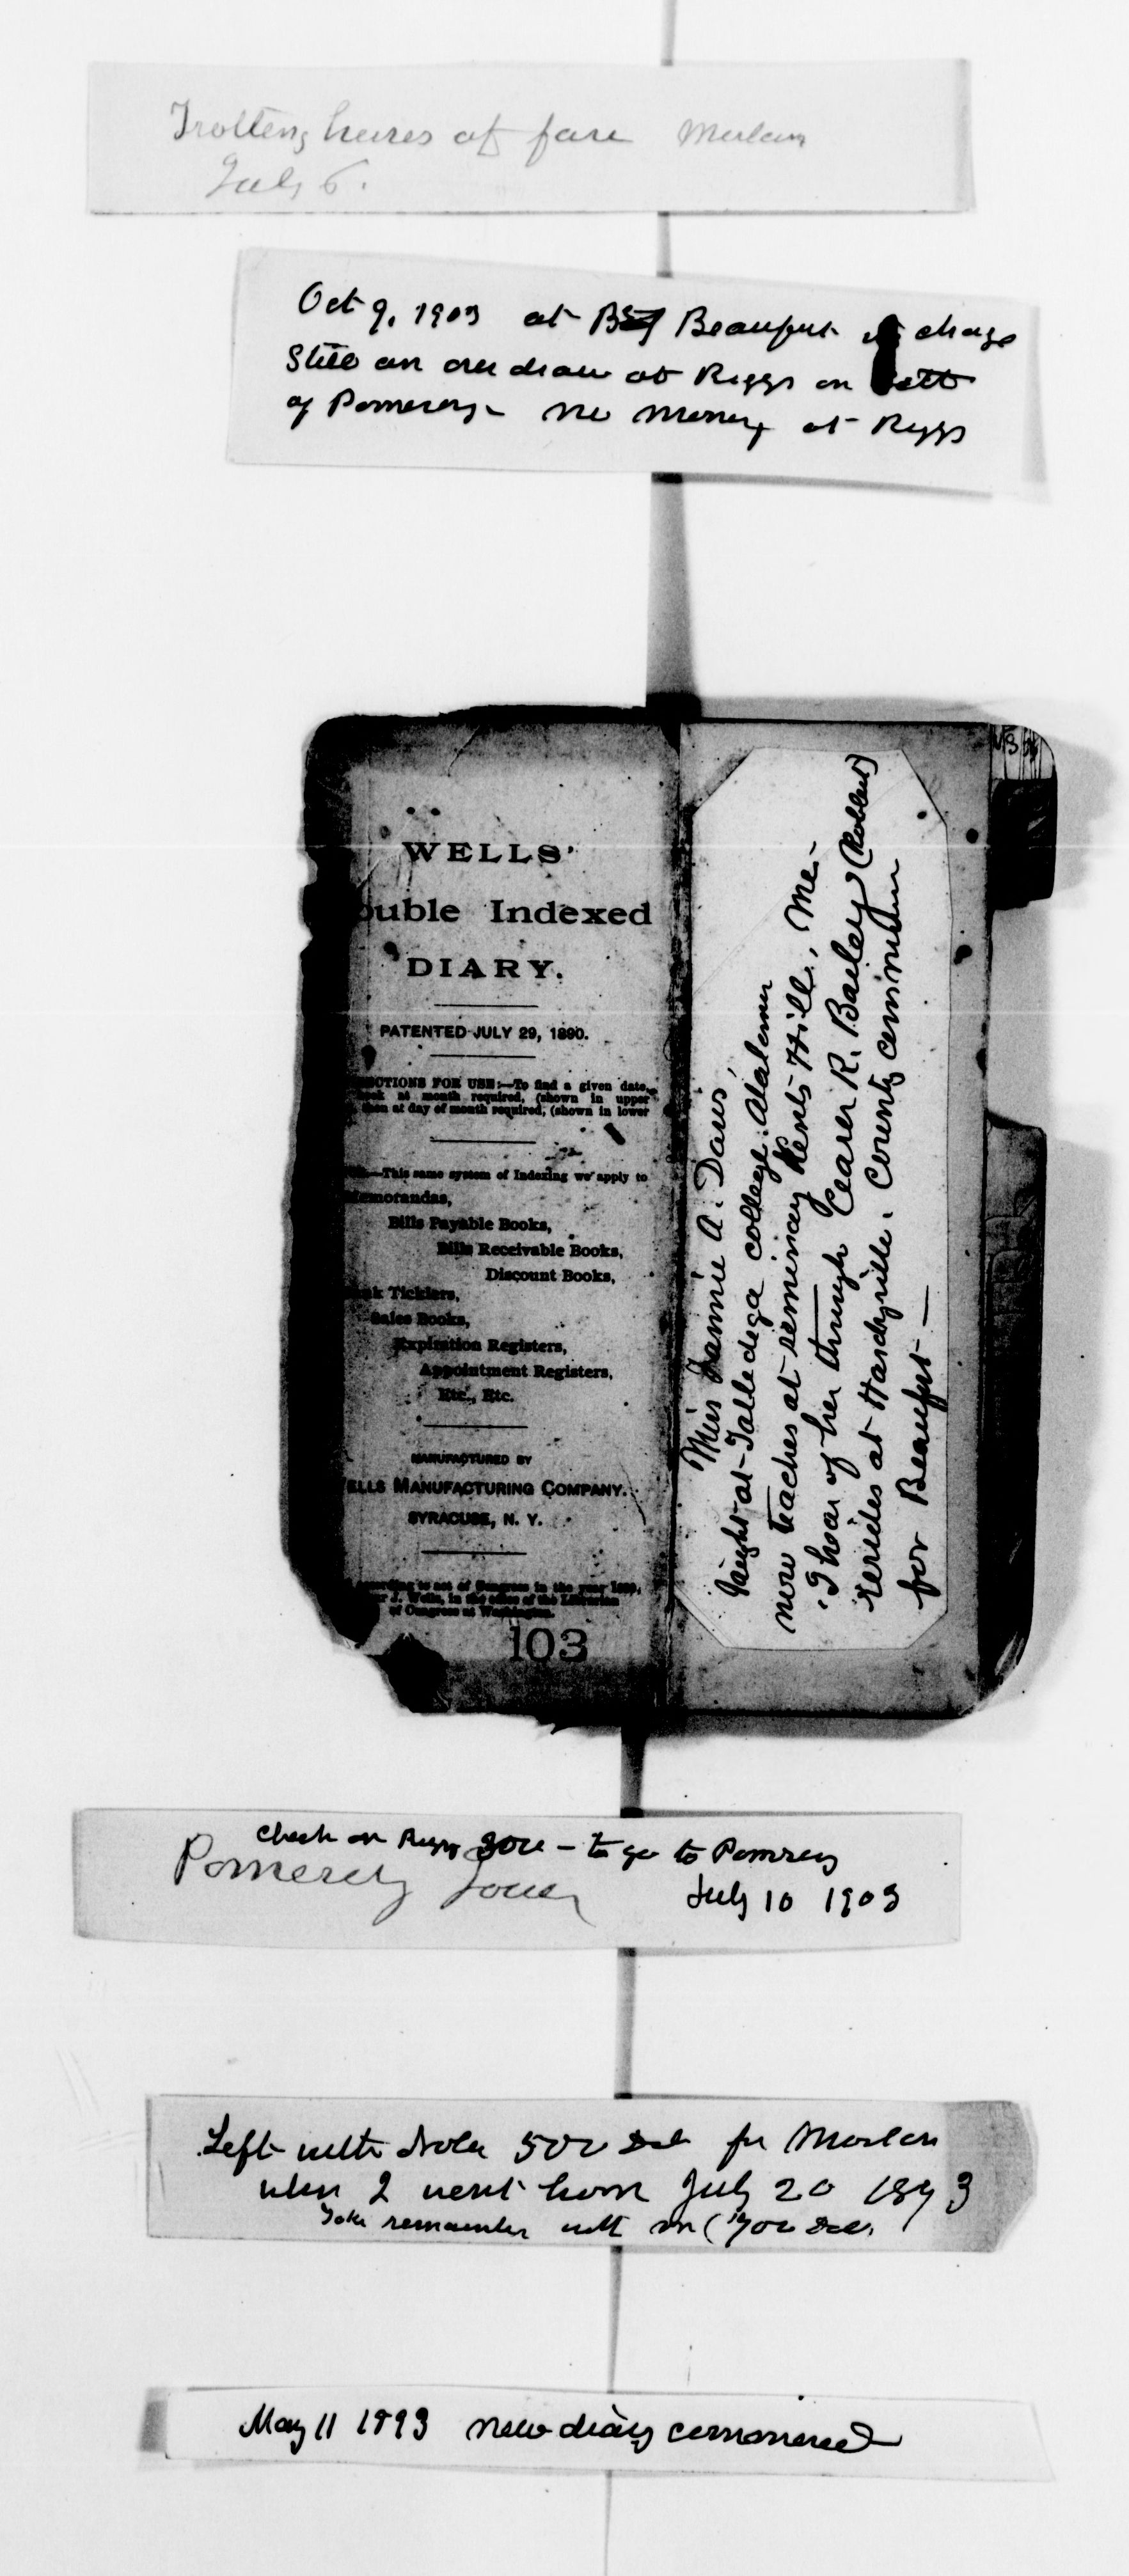 Trotting horses at
July 6.
Oct 9, 1903 at Beaufort charge
Still an on Riggs on
of Pomeroy - no money at Riggs
WELLS'
ouble Indexed
DIARY.
PATENTED JULY 29, 1890.
ECTIONS FOR USE:—To find a given date,
look at month required, (shown in upper
then at day of month required, (shown in lower
—This same system of Indexing we apply to
Memorandas,
Bills Payable Books,
Bills Receivable Books,
Discount Books,
nk Ticklers,
Sales Books,
Expiration Registers,
Appointment Registers,
Etc., Etc.
MANUFACTURED BY
ELLS MANUFACTURING COMPANY.
SYRACUSE, N. Y.
According to act of Congress in the year 1890,
r J. Wells, in the office of the Librarian
of Congress at Washington.
103
Miss Fannie A. Davis,
Taught at Talledega college Alabama
now teaches at seminary Kents Hill, Me-
I hear of her through R. Bailey (Robbert)
resides at Hardyville. County
for Beaufort —
check on Riggs - to go to Pomroy
Pomeroy
July 10 1903
Left with 500 for
when I went home July 20 1893
remainder with me (
May 11 1893 new diary commenced